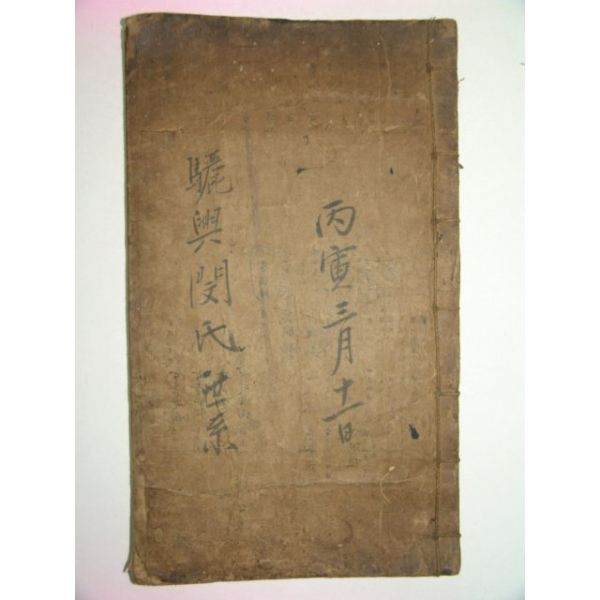 丙寅三月十一日
驪興閔氏世系